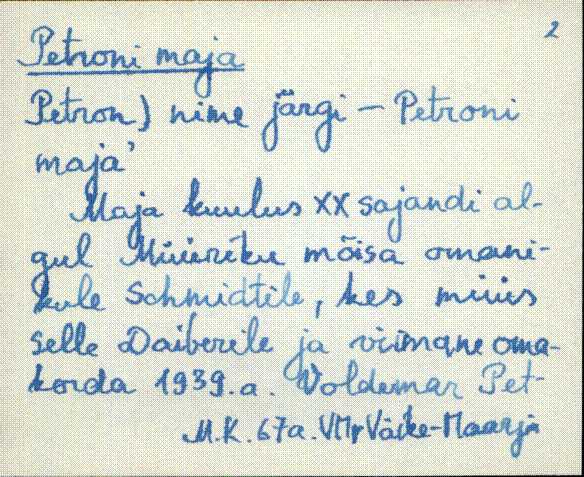 2
Petroni maja
Petron) nime järgi – Petroni
maja'
Maja kuulus XX sajandi al-
gul Müüriku mõisa omani-
kule Schmidtile, kes müüs
selle Daiberile ja viimane oma-
korda 1939.a. Voldemar Pet-
M.K. 67a. VMr Väike-Maarja